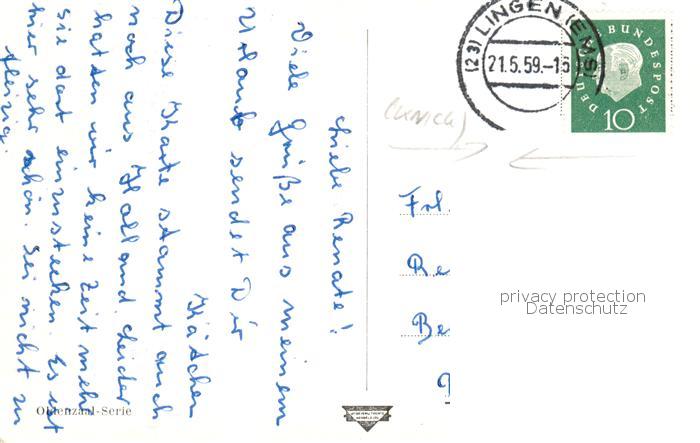 Liebe Renate!
Viele Grüße aus meinem
Urlaub sendet Dir
Kätchen
Diese Karte stammt auch
noch aus Holland, leider
hatten wir keine Zeit mehr
sie dort einzustecken. Es ist
hier sehr schön. Sei nicht zu
fleißig.
Oldenzaal-Serie
(23) LINGEN (EMS)
21.5.59.-15
DEUTSCHE BUNDESPOST
10
Frl.
Re
Be
privacy protection
Datenschutz